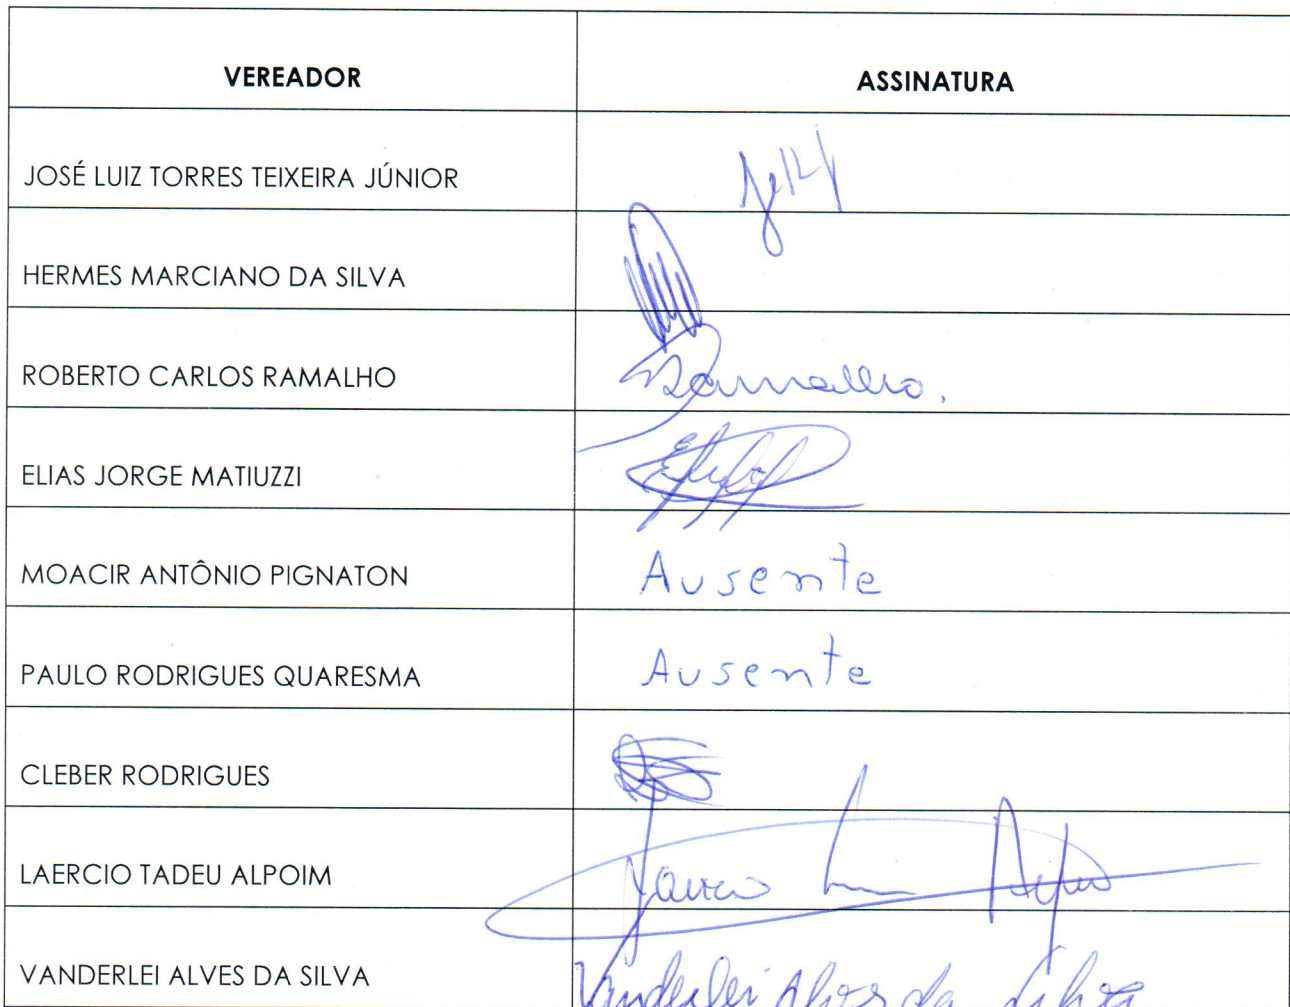 VEREADOR ASSINATURA
JOSÉ LUIZ TORRES TEIXEIRA JÚNIOR
HERMES MARCIANO DA SILVA
ROBERTO CARLOS RAMALHO Ramalho.
ELIAS JORGE MATIUZZI
MOACIR ANTÔNIO PIGNATON Ausente
PAULO RODRIGUES QUARESMA Ausente
CLEBER RODRIGUES
LAERCIO TADEU ALPOIM
VANDERLEI ALVES DA SILVA Vanderlei Alves da Silva